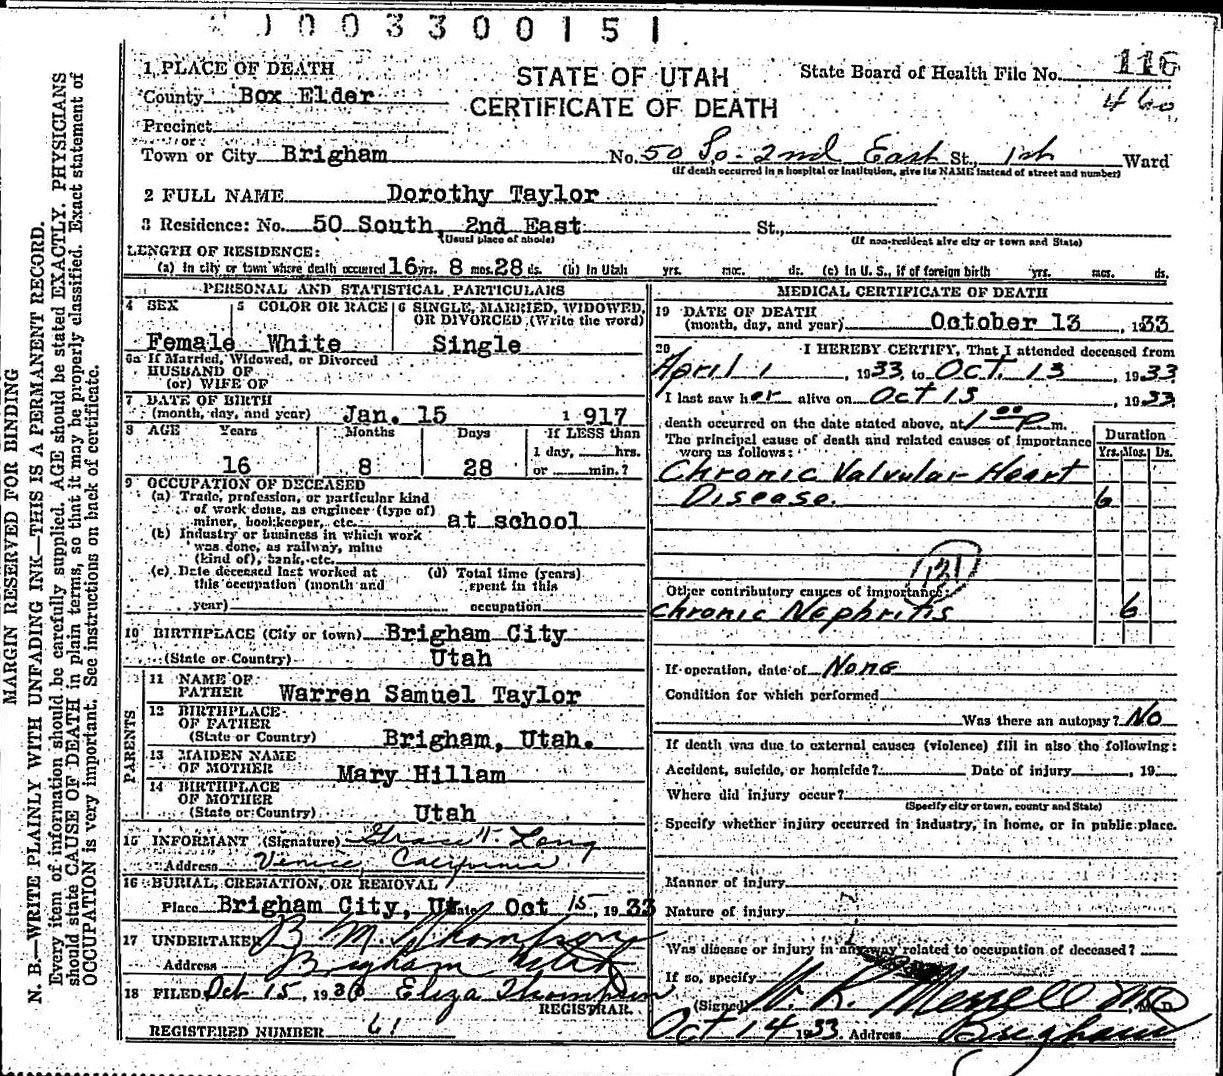 1003300151
1 PLACE OF DEATH
STATE OF UTAH
CERTIFICATE OF DEATH
State Board of Health File No. 116
460
County Box Elder
Precinct
or
Town or City Brigham No. 50 So. 2nd East St., 1st Ward
(If death occurred in a hospital or institution, give its NAME instead of street and number)
2 FULL NAME Dorothy Taylor
3 Residence: No. 50 South, 2nd East St.,
(Usual place of abode) (If non-resident give city or town and State)
LENGTH OF RESIDENCE:
(a) In city or town where death occurred 16 yrs. 8 mos. 28 ds. (b) In Utah yrs. mos. ds. (c) In U. S., if of foreign birth yrs. mos. ds.
PERSONAL AND STATISTICAL PARTICULARS
4 SEX 5 COLOR OR RACE 6 SINGLE, MARRIED, WIDOWED, OR DIVORCED (Write the word)
Female White Single
6a If Married, Widowed, or Divorced
HUSBAND OF
(or) WIFE OF
7 DATE OF BIRTH
(month, day, and year) Jan. 15 1917
8 AGE Years Months Days If LESS than
1 day, hrs.
16 8 28 or min.?
9 OCCUPATION OF DECEASED
(a) Trade, profession, or particular kind
of work done, as engineer (type of)
miner, bookkeeper, etc. at school
(b) Industry or business in which work
was done, as railway, mine
(kind of), bank, etc.
(c) Date deceased last worked at (d) Total time (years)
this occupation (month and spent in this
year) occupation
10 BIRTHPLACE (City or town) Brigham City
(State or Country) Utah
PARENTS
11 NAME OF
FATHER Warren Samuel Taylor
12 BIRTHPLACE
OF FATHER
(State or Country) Brigham, Utah.
13 MAIDEN NAME
OF MOTHER Mary Hillam
14 BIRTHPLACE
OF MOTHER
(State or Country) Utah
15 INFORMANT (Signature) Grace T. Long
Address Venice, California
16 BURIAL, CREMATION, OR REMOVAL
Place Brigham City, Ut Date Oct 15, 1933
17 UNDERTAKER B M Thompson
Address Brigham Utah
18 FILED Oct 15, 1936 Eliza Thompson
REGISTRAR.
REGISTERED NUMBER 61
MEDICAL CERTIFICATE OF DEATH
19 DATE OF DEATH
(month, day, and year) October 13, 1933
20 I HEREBY CERTIFY, That I attended deceased from
April 1, 1933, to Oct. 13, 1933
I last saw her alive on Oct 13, 1933
death occurred on the date stated above, at 1 00 P m.
The principal cause of death and related causes of importance
were as follows:
Duration
Yrs. Mos. Ds.
Chronic Valvular Heart
Disease. 6
131
Other contributory causes of importance:
Chronic Nephritis 6
If operation, date of None
Condition for which performed
Was there an autopsy? No
If death was due to external causes (violence) fill in also the following:
Accident, suicide, or homicide? Date of injury, 19
Where did injury occur?
(Specify city or town, county and State)
Specify whether injury occurred in industry, in home, or in public place.
Manner of injury
Nature of injury
Was disease or injury in anyway related to occupation of deceased?
If so, specify
(Signed) W. R. Merrell MD, M. D.
Oct 14 1933. Address Brigham
MARGIN RESERVED FOR BINDING
N. B.—WRITE PLAINLY WITH UNFADING INK—THIS IS A PERMANENT RECORD.
Every item of information should be carefully supplied. AGE should be stated EXACTLY. PHYSICIANS
should state CAUSE OF DEATH in plain terms, so that it may be properly classified. Exact statement of
OCCUPATION is very important. See instructions on back of certificate.